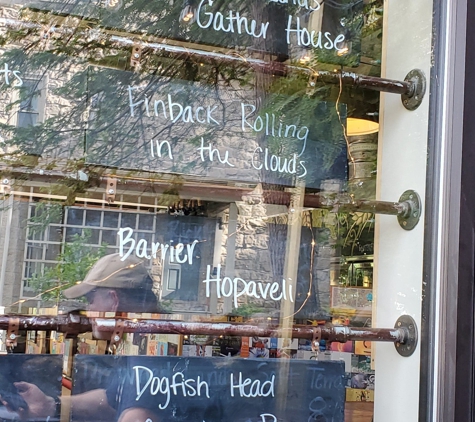 Gather House
Finback Rolling
in the Clouds
Barrier
Hopaveli
Dogfish Head